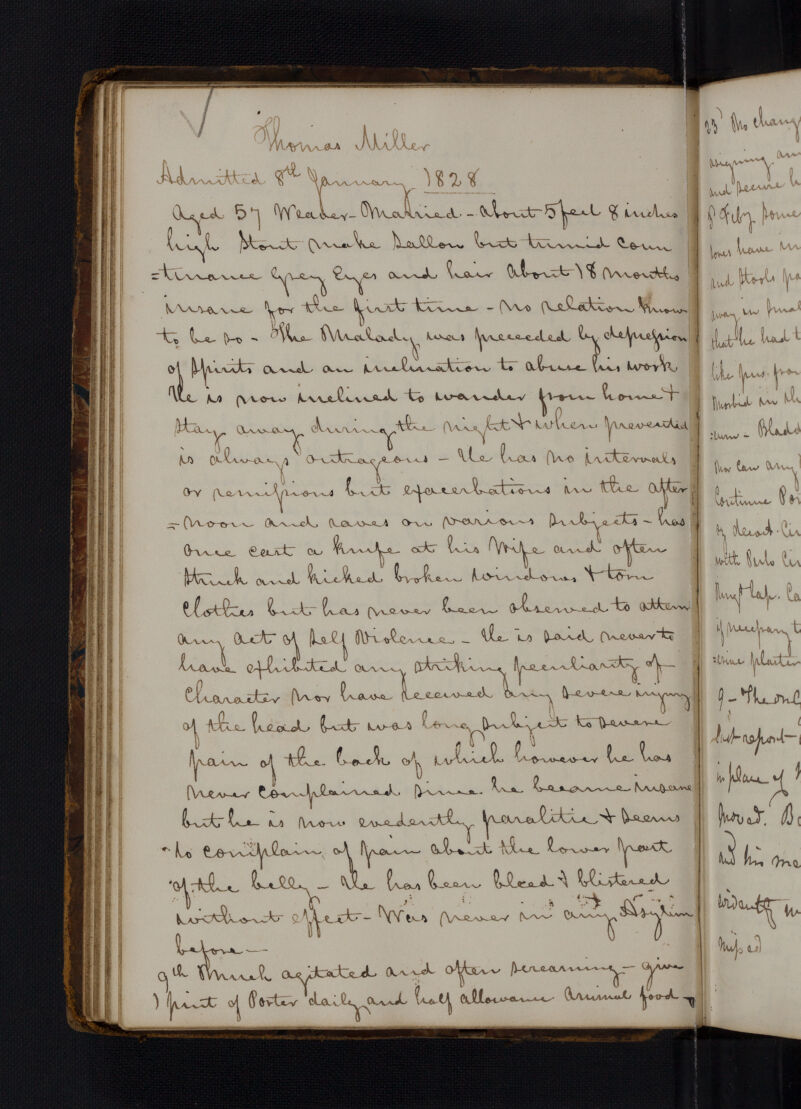 Thomas Miller
Admitted 8th January 1828
Aged 57 Weaver - Married - about 5 feet 8 inches
high Stout make Sallow but tumid Coun
=tinance Grey Eyes and hair About 18 months
insane for the first time - No relation known
to be so - The Malady was preceeded by depression
of Spirits and an inclination to abuse his work
He is now inclined to wander from home &
Stay away during the night & when prevented
is always outrageous - He has no intervals
or remissions but exacerbations in the after
=noon and raves on various Subjects - has
Once cast a knife at his Wife and often
Struck and kicked broken windows & torn
Clothes but has never been observed to attem
any act of Self Violence - He is said never to
have exhibited any striking peculiarity of
Character Nor have received any severe injury
of the head but was long subject to severe
pain of the back of which however he has
never Complained since he became insane
but he is now evedently paralitic & seems
to complain of pain about the lower part
of the belly - He has been bleed & blistered
without effect - Was never in any Asylum
before -
9th Much agitated and often screaming - give
1 pint of Porter daily and half allowance Animal food -
23d No chang
and
lower have
and Stools
that he had t
like pus from
Morbid in
- Bladd
Nor can any
Continue Por
of decoct. Cin
with
if necessary t
plaister
9 - The only
last report -
in place of
moved. Bo
and his me
evidently